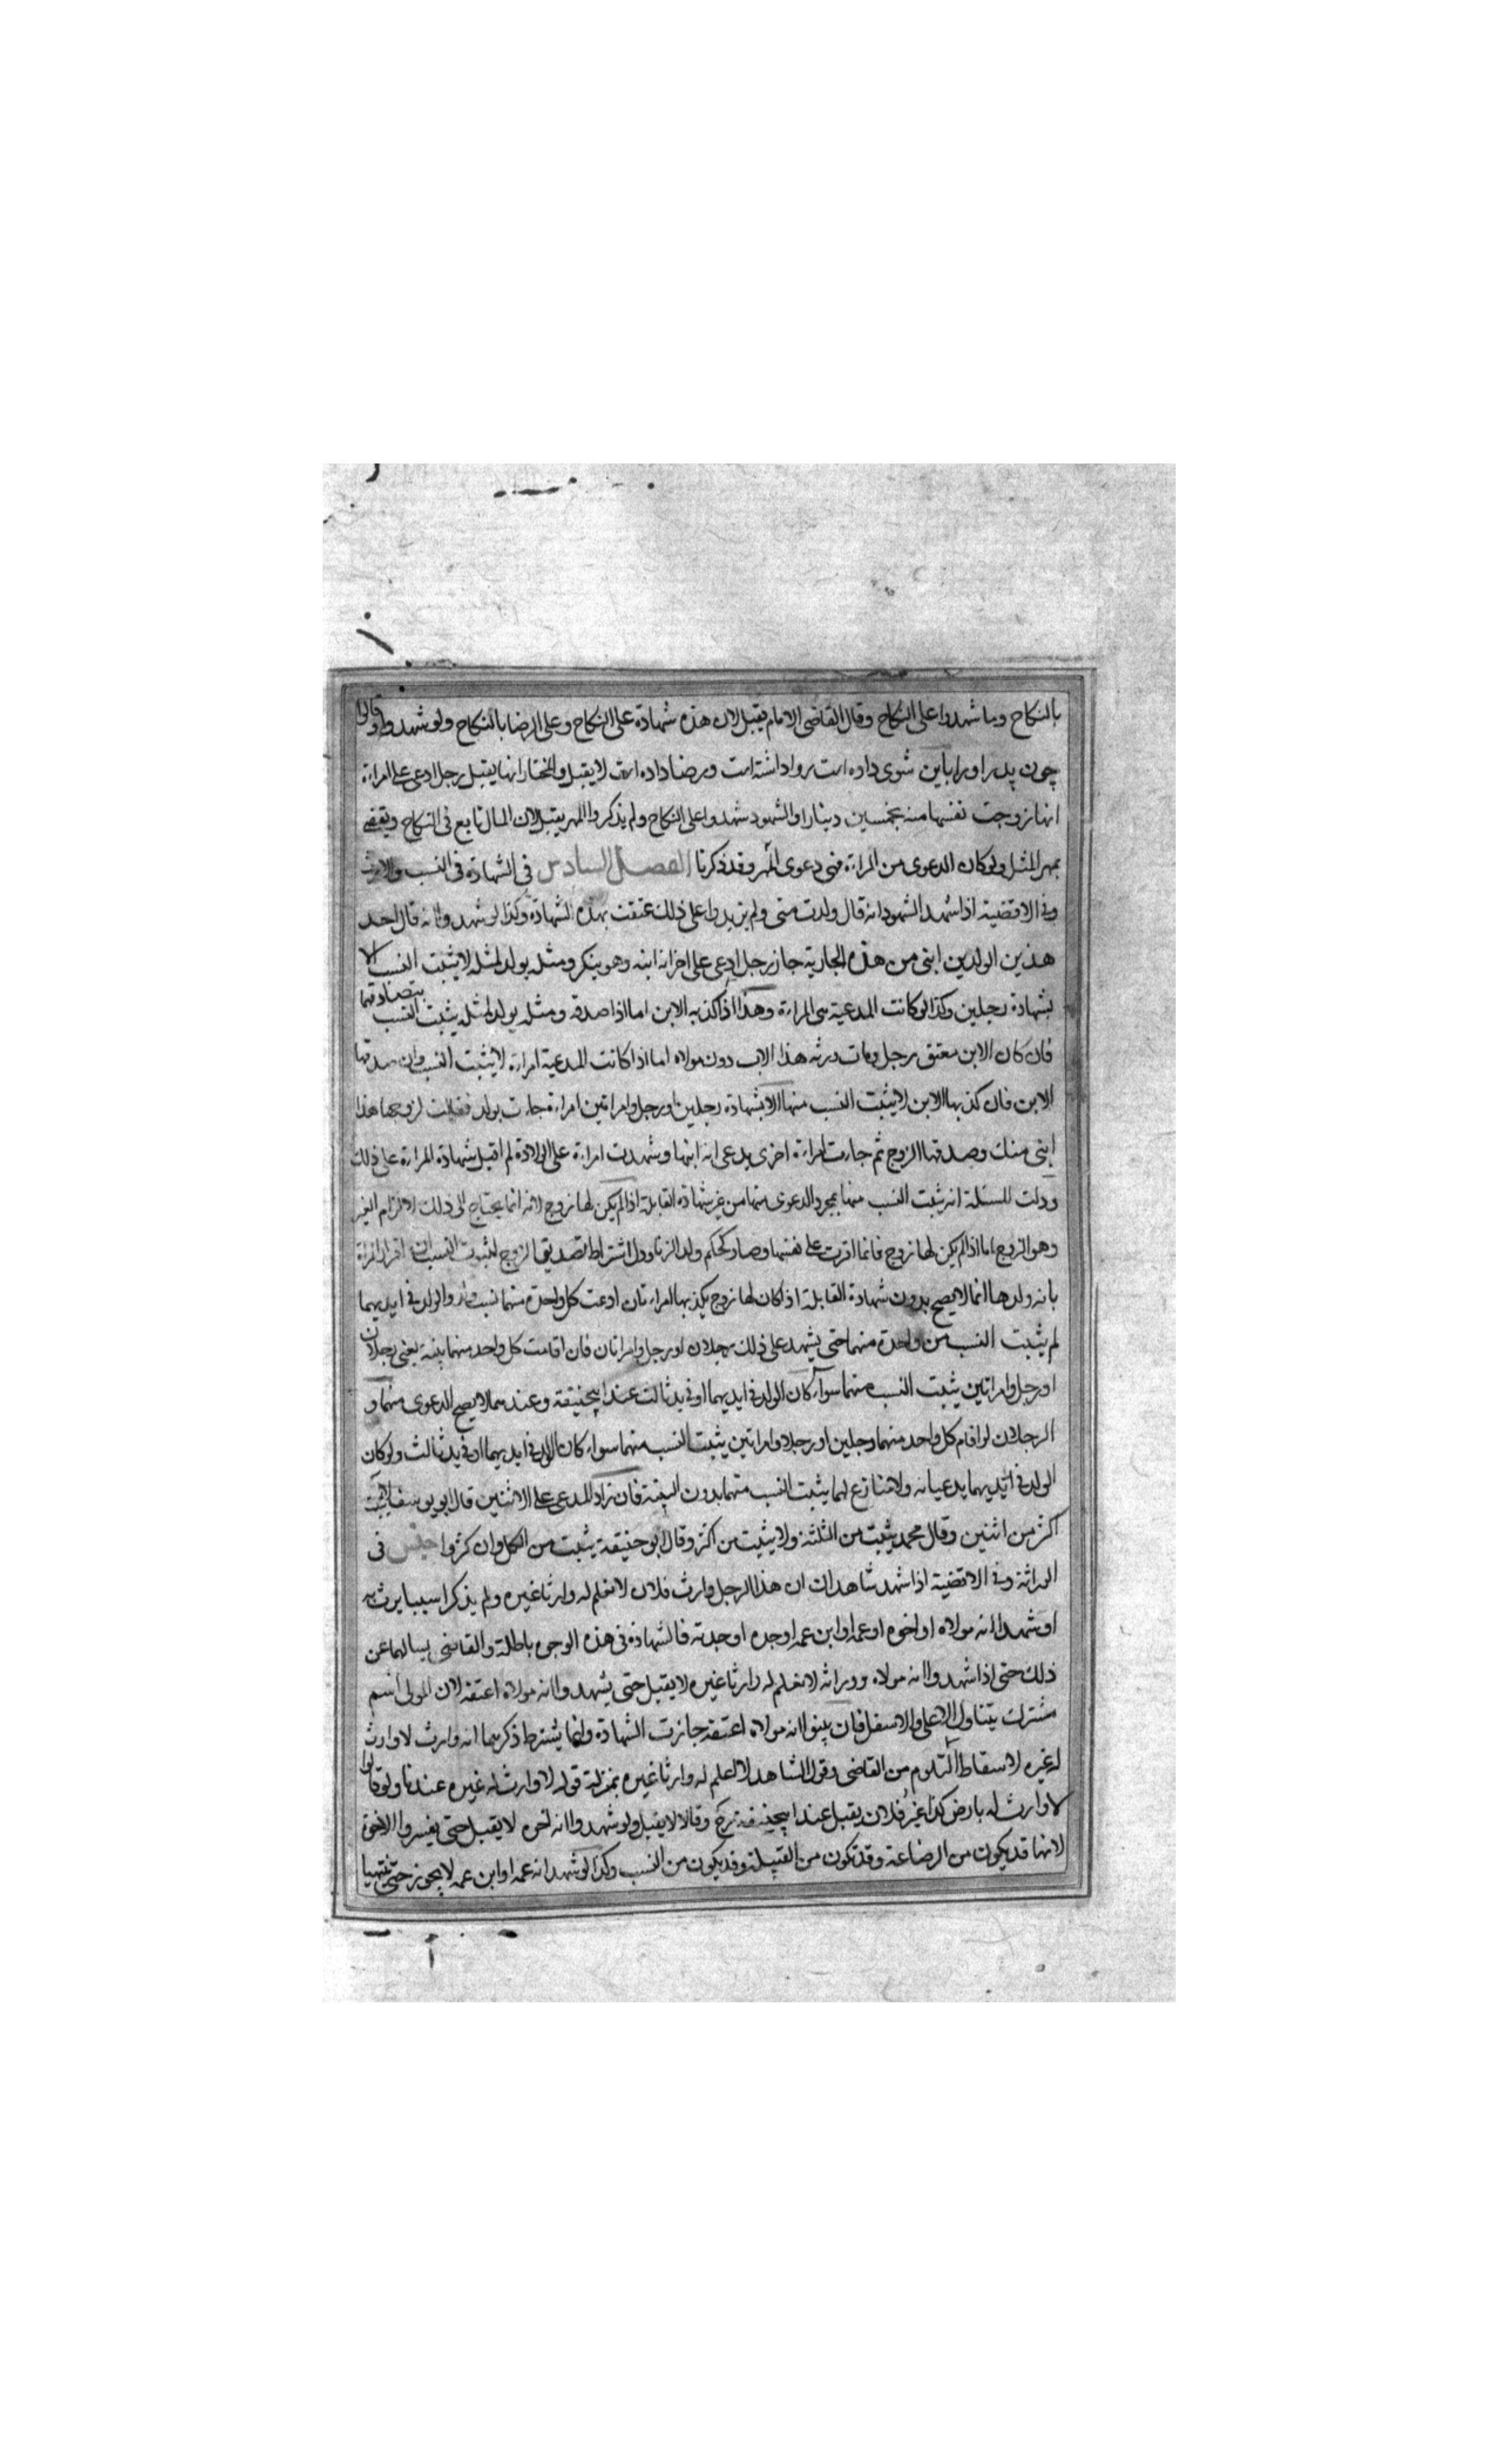 بالنكاح وما شهدوا على النكاح وقال القاضى الامام يقبل لان هذه شهادة على النكاح وعلى الرضا بالنكاح ولو شهدوا وقالوا
چون پدر اورا باين شوى داده است روا داشته است ورضا داده است لا يقبل والمختار انها يقبل رجل ادعى على امراة
انها تزوجت نفسها منه بخمسين دينارا والشهود شهدوا على النكاح ولم يذكروا المهر يقبل لان المال تابع فى النكاح ويقضى
بمهر المثل ولو كان الدعوى من المراة فهى دعوى المهر وقد ذكرنا الفصل السادس فى الشهادة فى النسب والارث
وفى الاقضية اذا شهد الشهود انه قال ولدت منى ولم يزيدوا على ذلك عتقت بهذه الشهادة وكذا لو شهدوا انه قال احد
هذين الولدين ابنى من هذه الجارية جاز رجل ادعى على اخر انه ابنه وهو ينكر ومثله يولد لمثله لا يثبت النسب الا
بشهادة رجلين وكذا لو كانت المدعية هى المراة وهذا اذا كذبه الابن اما اذا صدقه ومثله يولد لمثله يثبت النسب بتصادقهما
فان كان الابن معتق رجل ومات ورثه هذا الاب دون مولاه اما اذا كانت المدعية امراة لا يثبت النسب وان صدقها
الابن فان كذبها الابن لا يثبت النسب منها الا بشهادة رجلين او رجل وامراتين امراة جاءت بولد فقالت لزوجها هذا
ابنى منك وصدقها الزوج ثم جاءت امراة اخرى يدعى انه ابنها وشهدت امراة على الولادة لم اقبل شهادة المراة على ذلك
ودلت المسئلة انه يثبت النسب منها بمجرد الدعوى منها من غير شهادة القابلة اذا لم يكن لها زوج لانه انما يحتاج الى ذلك لالزام الغير
وهو الزوج اما اذا لم يكن لها زوج فانما اقرت على نفسها وصار كحكم ولد الزنا ودل اشتراط تصديق الزوج لثبوت النسب ان اقرار المراة
بانه ولدها انما لا يصح بدون شهادة القابلة اذا كان لها زوج يكذبها امراتان ادعت كل واحدة منهما نسب ولد والولد فى ايديهما
لم يثبت النسب من واحدة منهما حتى يشهد على ذلك رجلان او رجل وامراتان فان اقامت كل واحد منهما بينة يعنى رجلان
او رجل وامراتين يثبت النسب منهما سواء كان الولد فى ايديهما او فى يد ثالث عند ابيحنيفة وعندهما لا يصح الدعوى منهما و
الرجلان لو اقام كل واحد منهما رجلين او رجلا وامراتين يثبت النسب منهما سواء كان الولد فى ايديهما او فى يد ثالث ولو كان
الولد فى ايديهما يدعيانه ولا متنازع لهما يثبت النسب منهما بدون البينة فان زاد المدعى على الاثنين قال ابو يوسف لا يثبت
اكثر من اثنين وقال محمد يثبت من الثلثة ولا يثبت من اكثر وقال ابو حنيفة يثبت من الكل وان كثروا جنس فى
الوراثة وفى الاقضية اذا شهد شاهدان ان هذا الرجل وارث فلان لا نعلم له وارثا غيره ولم يذكرا سببا يرث به
او شهدا انه مولاه او اخوه او عمه او ابن عمه او جده او جدته فالشهادة فى هذه الوجوه باطلة والقاضى يسالهما عن
ذلك حتى اذا شهدوا انه مولاه ووراثه لا نعلم له وارثا غيره لا يقبل حتى يشهدوا انه مولاه اعتقه لان المولى اسم
مشترك يتناول الاعلى والاسفل فان بينوا انه مولاه اعتقه جازت الشهادة وانما يشترط ذكرهما انه وارث لا وارث
له غيره لاسقاط التلوم من القاضى وقول الشاهد لا اعلم له وارثا غيره بمنزلة قوله لا وارث له غيره عندنا ولو قالوا
لا وارث له بارض كذا غير فلان يقبل عند ابيحنيفة رح وقالا لا يقبل ولو شهدوا انه اخوه لا يقبل حتى يفسروا الاخوة
لانها قد يكون من الرضاعة وقد تكون من القبيلة وقد يكون من النسب وكذا لو شهدا انه عمه او ابن عمه لا يجوز حتى ينتهيا